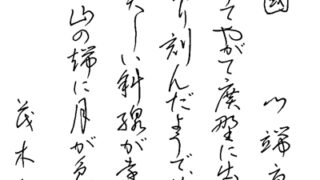 國 川端康
てやがて廣野に出
り刻んだようで、
美しい斜線が遠
山の端に月が色
茂木